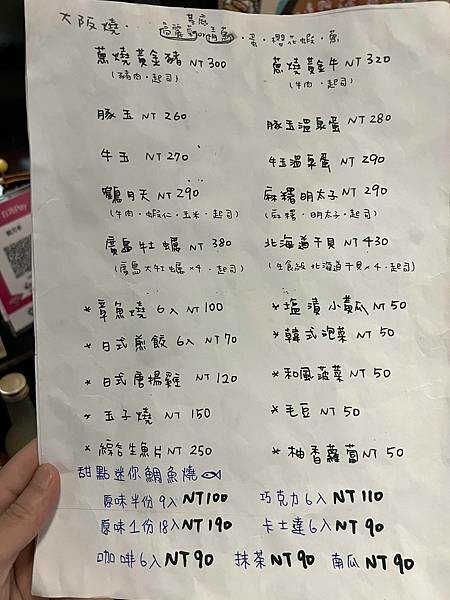 大阪燒. 基底 高麗菜or青蔥.蛋.櫻花蝦.蔥
蔥燒黃金豬 NT 300
(豬肉.起司)
蔥燒黃金牛 NT 320
(牛肉.起司)
豚玉 NT 260
豚玉溫泉蛋 NT 280
牛玉 NT 270
牛玉溫泉蛋 NT 290
鶴月天 NT 290
(牛肉.蝦仁.玉米.起司)
麻糬明太子 NT 290
(麻糬.明太子.起司)
廣島牡蠣 NT 380
(廣島大牡蠣×4.起司)
北海道干貝 NT 430
(生食級北海道干貝×4.起司)
*章魚燒 6入 NT 100
*鹽漬小黃瓜 NT 50
*日式煎餃 6入 NT 70
*韓式泡菜 NT 50
*日式唐揚雞 NT 120
*和風菠菜 NT 50
*玉子燒 NT 150
*毛豆 NT 50
*綜合生魚片 NT 250
*柚香蘿蔔 NT 50
甜點迷你鯛魚燒
原味半份 9入 NT 100
巧克力 6入 NT 110
原味1份 18入 NT 190
卡士達 6入 NT 90
咖啡 6入 NT 90 抹茶 NT 90 南瓜 NT 90